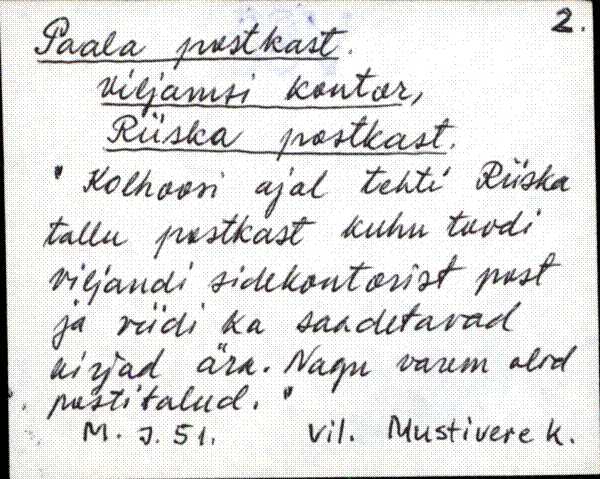 2.
Paala postkast.
Viljamsi kontor,
Riiska postkast.
" Kolhoosi ajal tehti Riiska
tallu postkast kuhu toodi
viljandi sidekontorist post
ja viidi ka saadetavad
kirjad ära. Nagu varem olid
postitalud. "
M. J. 51. Vil. Mustivere k.